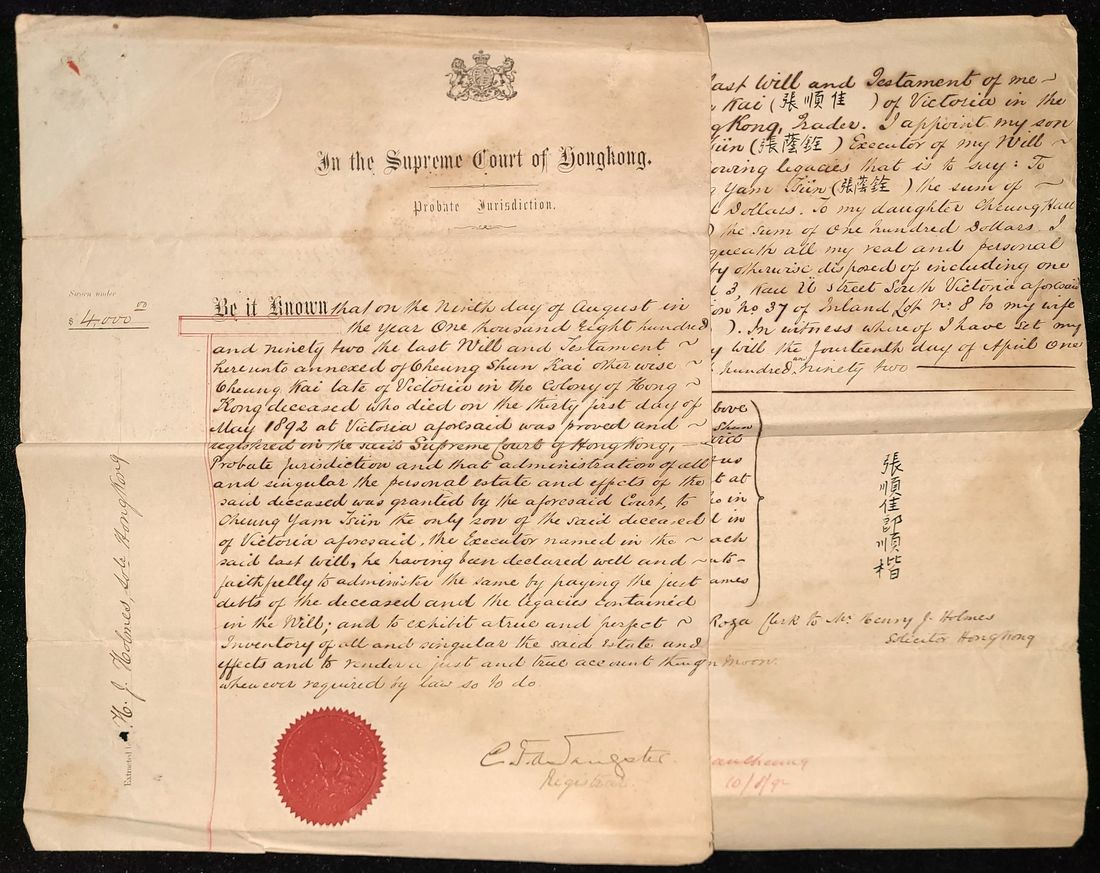 In the Supreme Court of Hongkong.
Probate Jurisdiction.
Sworn under
$ 4,000 00
Be it Known that on the Ninth day of August in
the year One thousand Eight hundred
and ninety two the last Will and Testament ~
hereunto annexed of Cheung Shun Kai otherwise
Cheung Kai late of Victoria in the Colony of Hong ~
Kong deceased who died on the thirty first day of
May 1892 at Victoria aforesaid was proved and
registered in the said Supreme Court of Hong Kong,
Probate jurisdiction and that administration of all
and singular the personal estate and effects of the
said deceased was granted by the aforesaid Court, to
Cheung Yam Tsün the only son of the said deceased
of Victoria aforesaid, the Executor named in the ~
said last will, he having been declared well and ~
faithfully to administer the same by paying the just
debts of the deceased and the legacies contained
in the Will; and to exhibit a true and perfect ~
Inventory of all and singular the said estate and
effects and to render a just and true account
whenever required by law so to do.
Registrar.
Extracted by H. J. Holmes, HongKong
last Will and Testament of me ~
Kai (張順佳) of Victoria in the
Kong, Trader. I appoint my son
Tsün (張蔭銓) Executor of my Will ~
owing legacies that is to say: To
Yam Tsün (張蔭銓) the sum of ~
Dollars. To my daughter Cheung
) the sum of One hundred Dollars. I
queath all my real and personal
otherwise disposed of including one
3, Kau U street South Victoria aforesaid
on No 37 of Inland Lot No 8 to my wife
). In witness whereof I have set my
will the fourteenth day of April One
hundred and ninety two
bove
Shun
us
t at
in
d in
each
ames
張順佳即順楷
Roza Clerk to Mr Henry J. Holmes
Solicitor HongKong
Moon.
Cheung
10/8/92